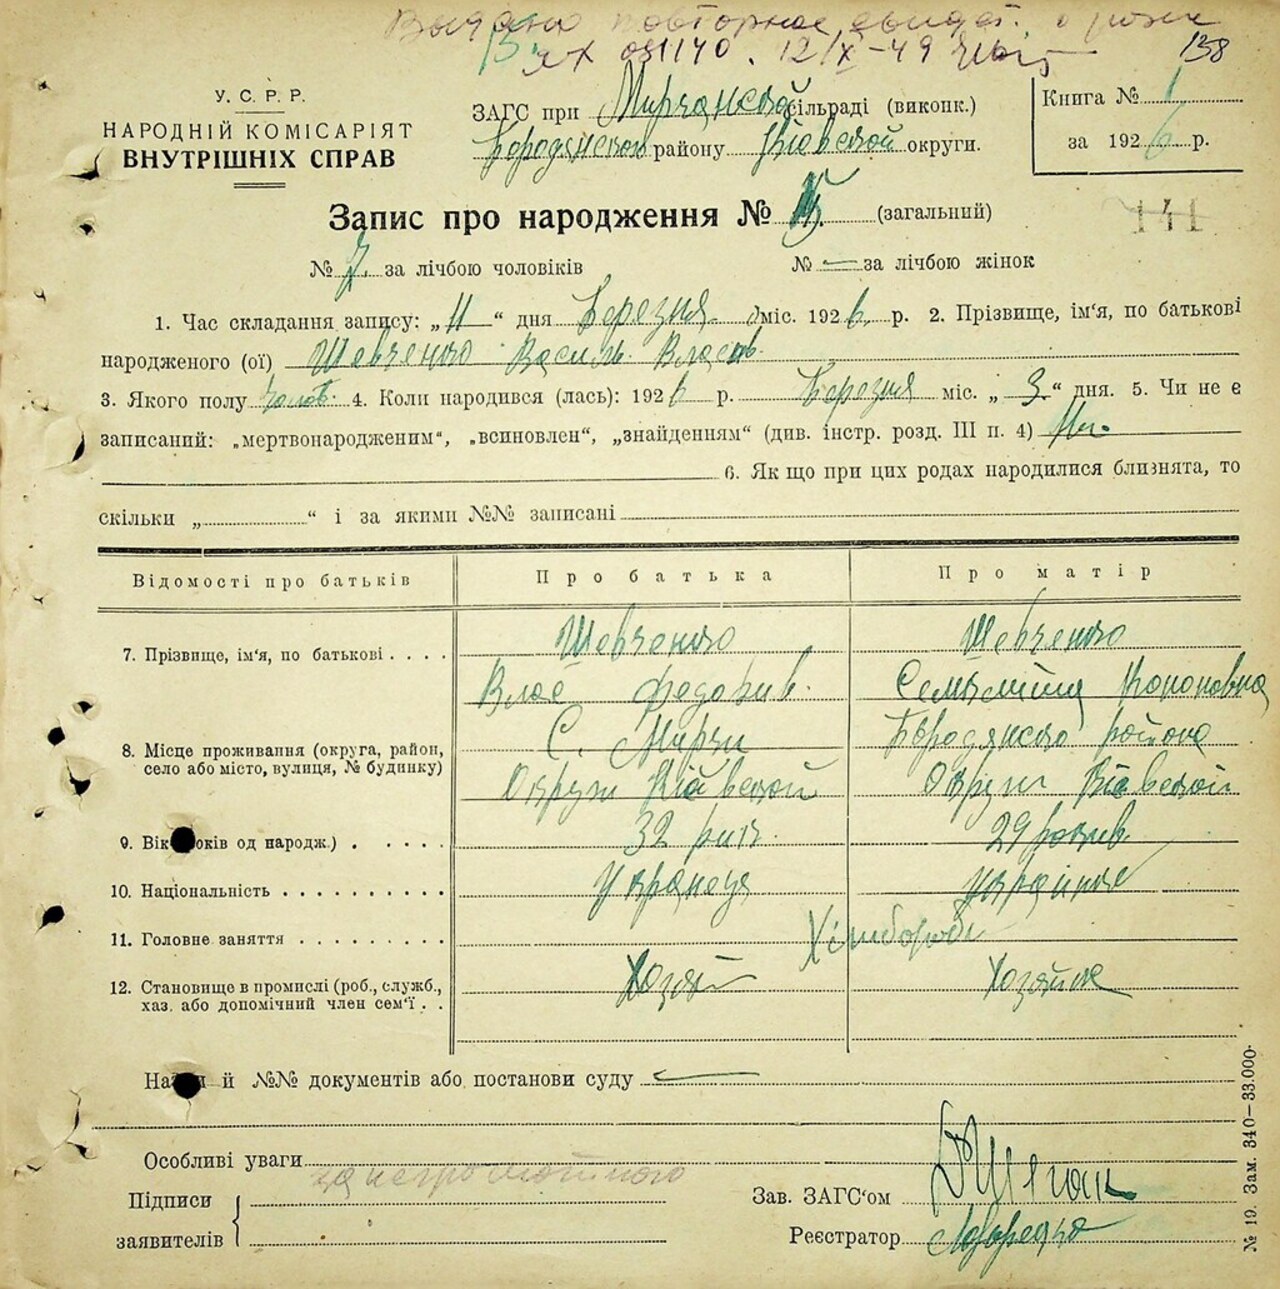 Выдано повторное свидет. о рожд
ЯХ 031140. 12/X-49 138
У. С. Р. Р.
НАРОДНІЙ КОМІСАРІЯТ
ВНУТРІШНІХ СПРАВ
ЗАГС при Мирчанской сільраді (виконк.)
Бородянском району Київской округи.
Книга № 1
за 1926 р.
Запис про народження № 15. (загальний)
141
№ 7. за лічбою чоловіків № — за лічбою жінок
1. Час складання запису: „11“ дня Березня міс. 1926 р. 2. Прізвище, ім‘я, по батькові
народженого (ої) Шевченко Василь Власов.
3. Якого полу чолов. 4. Коли народився (лась): 1926 р. Березня міс. „3“ дня. 5. Чи не є
записаний: „мертвонародженим“, „всиновлен“, „знайденням“ (див. інстр. розд. III п. 4) Ні.
6. Як що при цих родах народилися близнята, то
скільки „ “ і за якими №№ записані
Відомості про батьків Про батька Про матір
7. Прізвище, ім‘я, по батькові . . . . Шевченко Шевченко
Влас Федорив. Кононовна
8. Місце проживання (округа, район, С. Мирчи Бородянсько района
село або місто, вулиця, № будинку) Округи Київской Округи Київской
9. Вік років од народж.) . . . . . 32 рик. 29 рокив.
10. Національність . . . . . . . . . . Укранець украінка
11. Головне заняття . . . . . . . . . Хлібороби
12. Становище в промислі (роб., служб., Хозяїн Хозяйка
хаз. або допомічний член сем‘ї . .
Назви й №№ документів або постанови суду —
Особливі уваги
Підписи за неграмотного
заявителів
Зав. ЗАГС‘ом
Реєстратор
№ 19. Зам. 340—33.000.